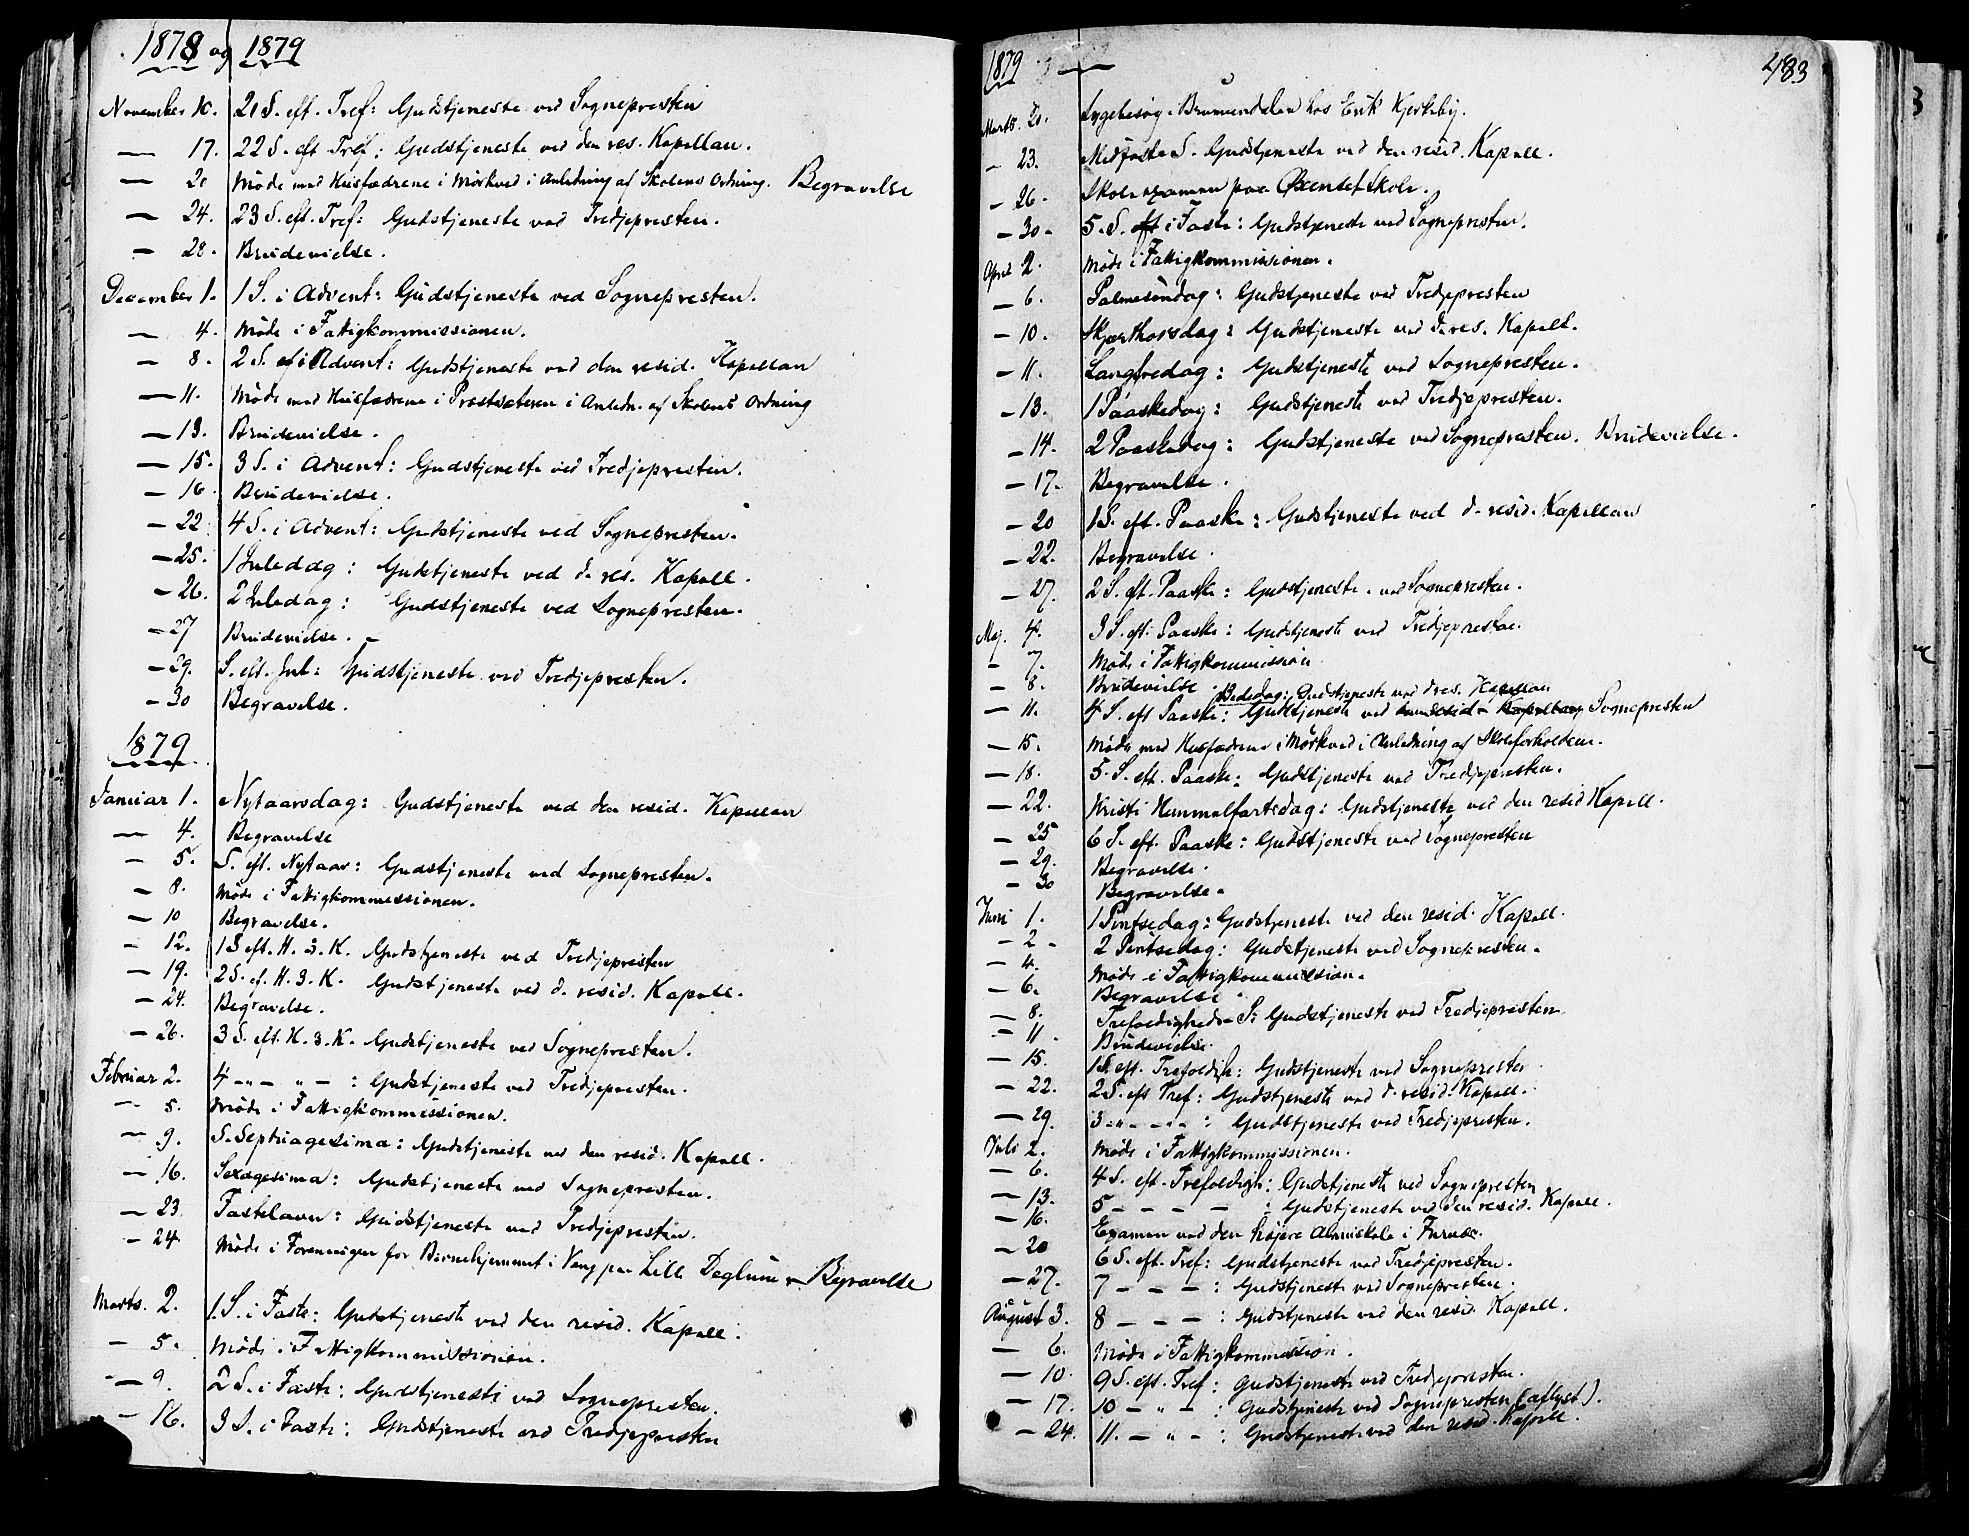 1878 og 1879
November 10. 21 S. eft. Tref: Gudstjeneste ved Sognepresten
— 17. 22 S. eft Tref: Gudstjeneste ved den res. Kapellan.
— 20 Møde med Husfædrene i Mørkved i Anledning af Skolens Ordning. Begravelse
— 24. 23 S. eft. Tref: Gudstjeneste ved Tredjepresten.
— 28. Brudevielse.
December 1. 1 S. i Advent: Gudstjeneste ved Sognepresten.
— 4. Møde i Fattigkommissionen.
— 8. 2 S. i Advent: Gudstjeneste ved den resid. Kapellan
— 11. Møde med Husfædrene i Prestesæteren i Anledn. af Skolens Ordning
— 13. Brudevielse.
— 15. 3 S. i Advent: Gudstjeneste ved Tredjepresten.
— 16. Brudevielse.
— 22 4 S. i Advent: Gudstjeneste ved Sognepresten.
— 25. 1 Juledag: Gudstjeneste ved d. res. Kapell.
— 26. 2 Juledag: Gudstjeneste ved Sognepresten.
— 27 Brudevielse. —
— 29. S. eft. Jul: Gudstjeneste ved Tredjepresten.
— 30 Begravelse.
1879
Januar 1. Nytaarsdag: Gudstjeneste ved den resid. Kapellan
— 4. Begravelse
— 5. S. eft. Nytaar: Gudstjeneste ved Sognepresten.
— 8. Møde i Fattigkommissionen.
— 10 Begravelse.
— 12. 1 S eft. H. 3. K. Gudstjeneste ved Tredjepresten
— 19. 2 S. ef. H. 3. K. Gudstjeneste ved d. resid. Kapell.
— 24. Begravelse.
— 26. 3 S. eft. H. 3. K. Gudstjeneste ved Sognepresten.
Februar 2. 4 — " — " — : Gudstjeneste ved Tredjepresten.
— 5. Møde i Fattigkommissionen.
— 9. S. Septuagesima: Gudstjeneste ved den resid. Kapell.
— 16. Sexagesima: Gudstjeneste ved Sognepresten.
— 23 Fastelavn: Gudstjeneste ved Tredjepresten.
— 24. Møde i Foreningen for Børnehjemmet i Vang paa Lille Deglum — Begravelse
Marts. 2. 1. S. i Faste: Gudstjeneste ved den resid. Kapell.
— 5. Møde i Fattigkommissionen.
— 9. 2 S. i Faste: Gudstjeneste ved Sognepresten.
— 16. 3 S. i Faste: Gudstjeneste ved Tredjepresten
1879 483
Marts. 20. Sygebesøg i Brumunddalen hos Erik Kjerkeby.
— 23. Midfaste S. Gudstjeneste ved den resid. Kapell.
— 26. Skoleexamen paa Skole.
— 30 — 5. S. eft i Faste: Gudstjeneste ved Sognepresten.
April 2. Møde i Fattigkommissionen.
— 6. Palmesøndag: Gudstjeneste ved Tredjepresten
— 10. Skjærthorsdag: Gudstjeneste ved d. res. Kapell.
— 11. Langfredag: Gudstjeneste ved Sognepresten.
— 13. 1 Paaskedag: Gudstjeneste ved Tredjepresten.
— 14. 2 Paaskedag: Gudstjeneste ved Sognepresten. Brudevielse.
— 17. Begravelse.
— 20 1 S. eft. Paaske: Gudstjeneste ved d. resid. Kapellan
— 22. Begravelse.
— 27. 2 S. eft. Paaske: Gudstjeneste ved Sognepresten.
Maj. 4. 3 S. eft. Paaske: Gudstjeneste ved Tredjepresten.
— 7. Møde i Fattigkommission
— 8. Brudevielse. Bededag: Gudstjeneste ved d res. Kapellan
— 11. 4 S. eft Paaske: Gudstjeneste ved den resid. Kapellan Sognepresten
— 15. Møde med Husfædrene i Mørkved i Anledning af Skoleforholdene.
— 18. 5. S. eft. Paaske: Gudstjeneste ved Tredjepresten.
— 22. Kristi Himmelfartsdag: Gudstjeneste ved den resid Kapell.
— 25 6 S. eft. Paaske: Gudstjeneste ved Sognepresten
— 29. Begravelse.
— 30 Begravelse.
Juni 1. 1 Pintsedag: Gudstjeneste ved den resid. Kapell.
— 2 — 2 Pintsedag: Gudstjeneste ved Sognepresten.
— 4. Møde i Fattigkommission.
— 6. Begravelse.
— 8. Trefoldigheds-S: Gudstjeneste ved Tredjepresten
— 11. Brudevielse.
— 15. 1 S. eft. Trefoldigh: Gudstjeneste ved Sognepresten
— 22. 2 S. eft Tref: Gudstjeneste ved d. resid. Kapell.
— 29. 3 — " — — " — : Gudstjeneste ved Tredjepresten.
Juli 2. Møde i Fattigkommissionen.
— 6. 4 S. eft. Trefoldigh: Gudstjeneste ved Sognepresten
— 13. 5 — — — — : Gudstjeneste ved den resid. Kapell.
— 16. Examen ved den højere Almuskole i Furnæs.
— 20 6 S. eft. Tref: Gudstjeneste ved Tredjepresten.
— 27. 7 — — — : Gudstjeneste ved Sognepresten.
August 3. 8 — — — : Gudstjeneste ved den resid. Kapell.
— 6. Møde i Fattigkommission.
— 10. 9 S. eft. Tref: Gudstjeneste ved Tredjepresten.
— 17. 10 — " — : Gudstjeneste ved Sognepresten (aflyst).
— 24. 11. — " — : Gudstjeneste ved den resid. Kapell.